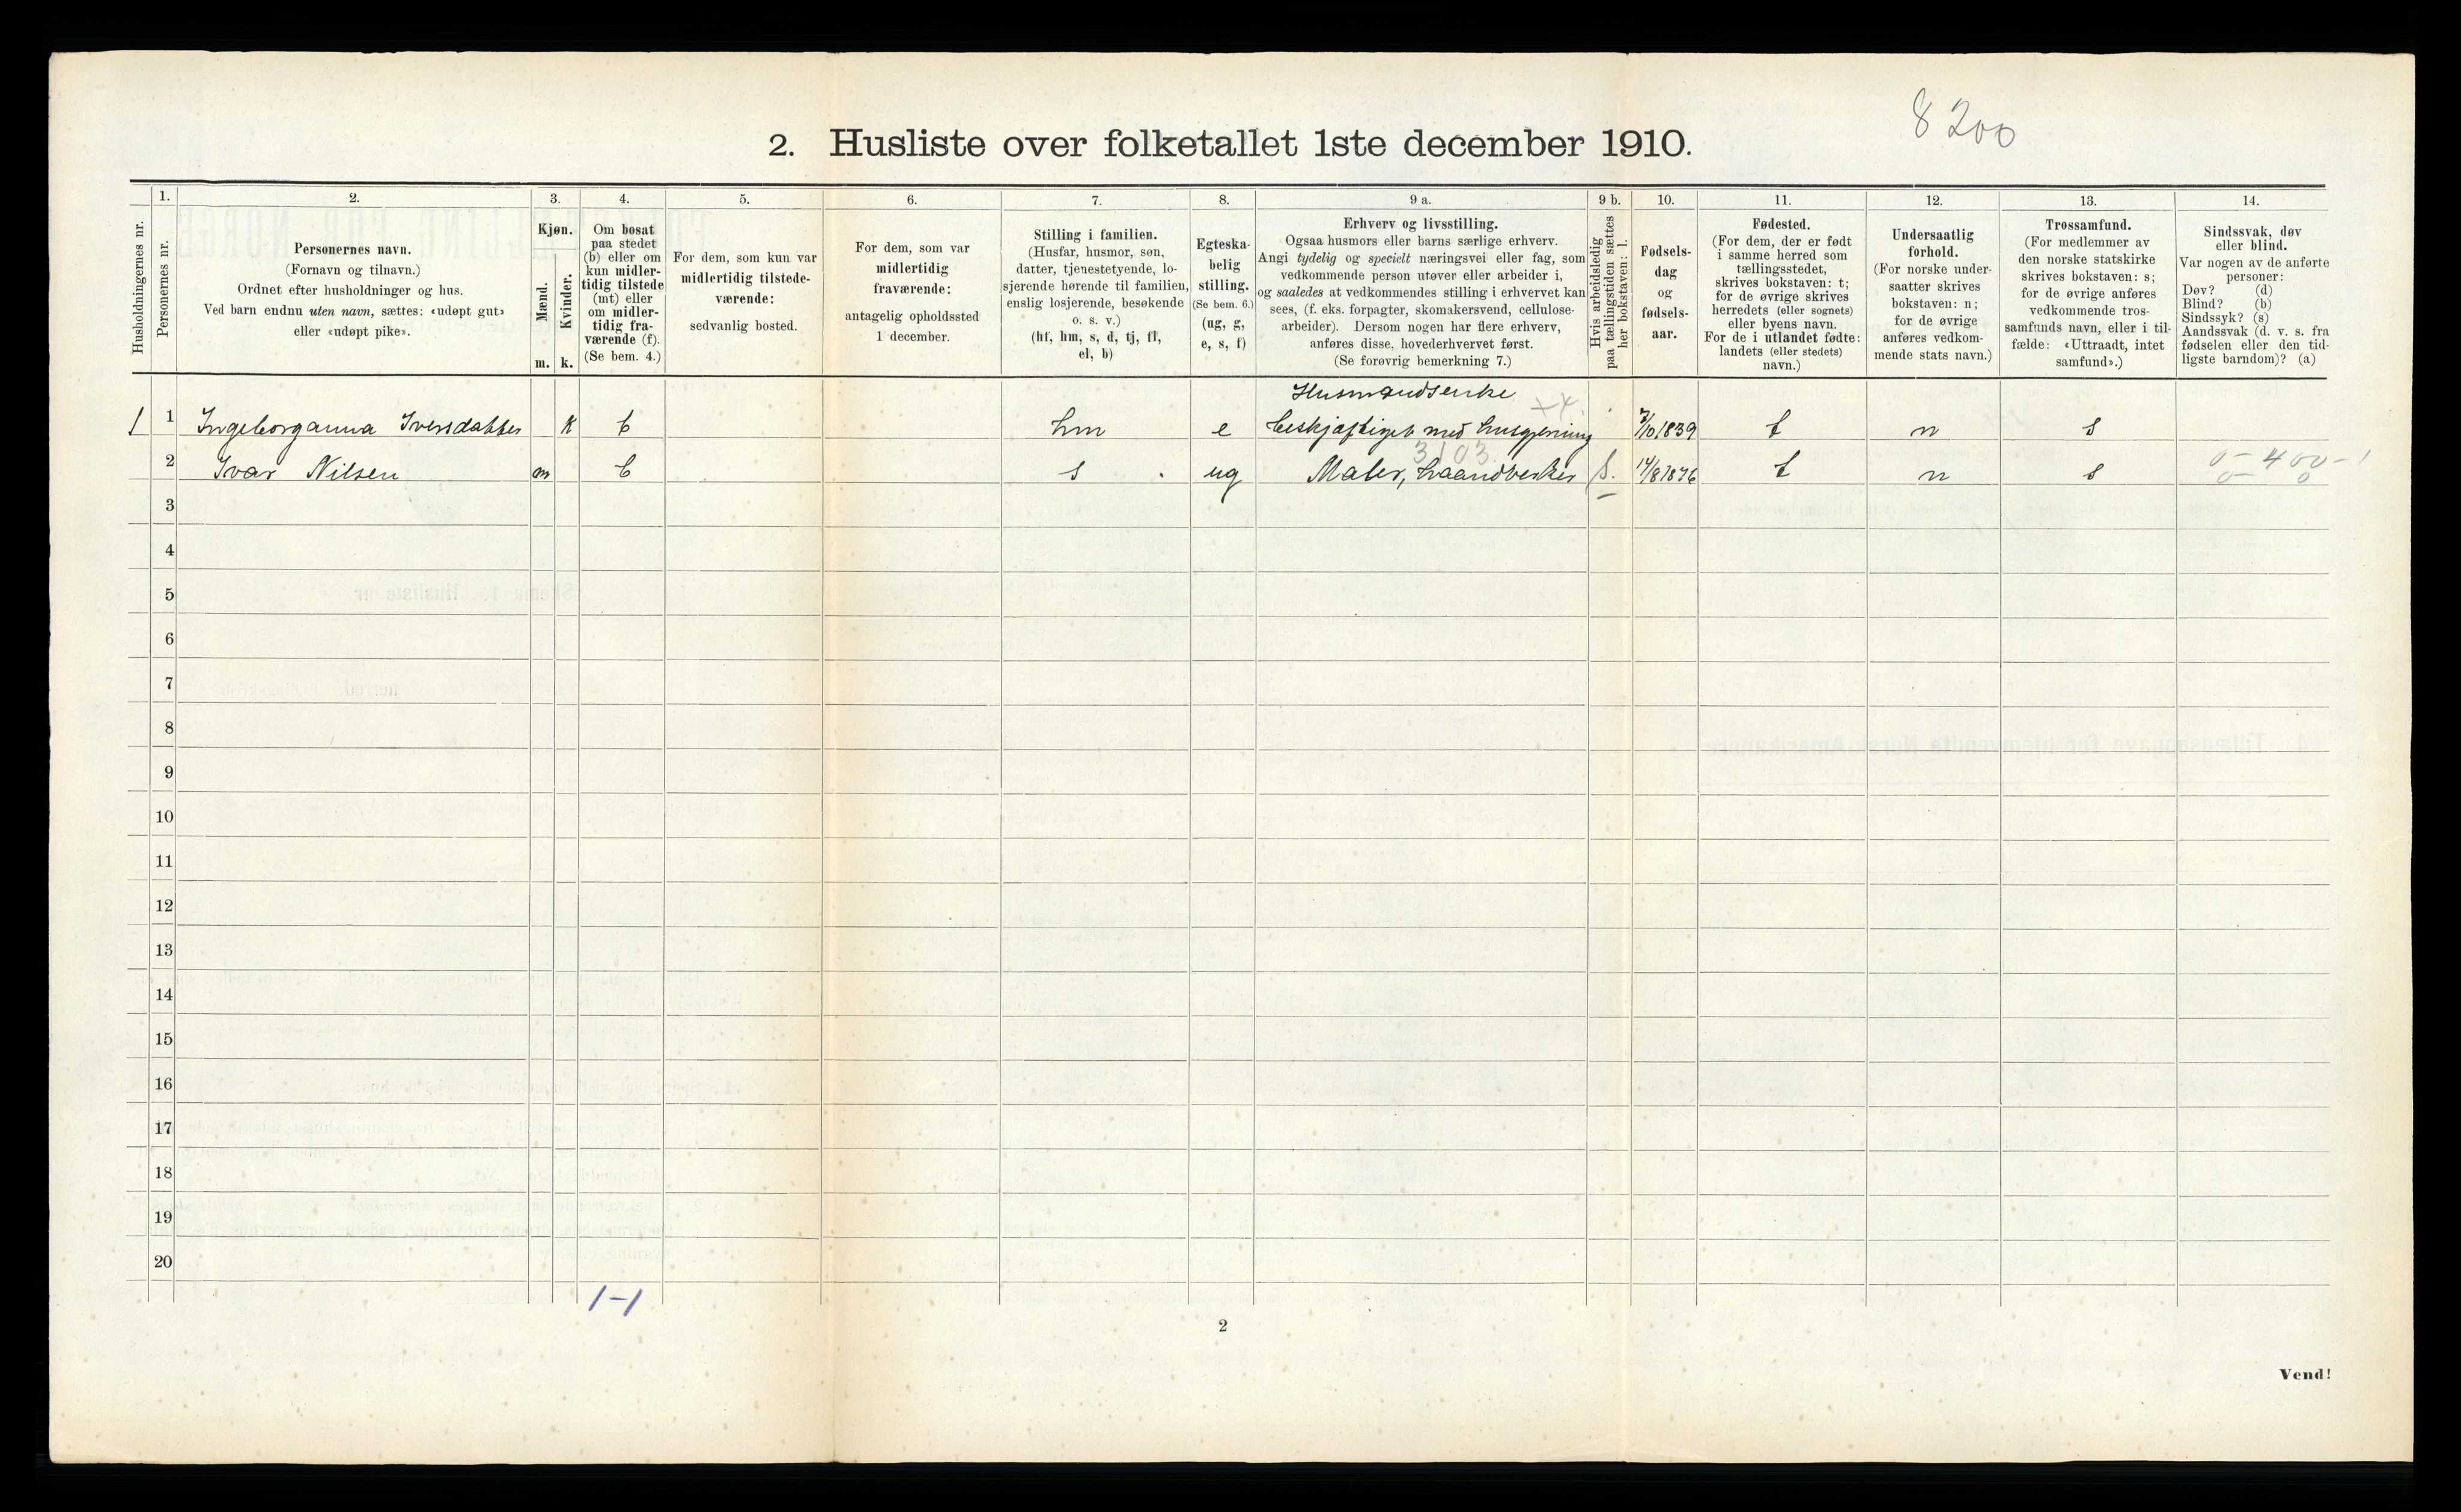 8200
2. Husliste over folketallet 1ste december 1910.
Husholdningernes nr.
1.
Personernes nr.
2.
Personernes navn.
(Fornavn og tilnavn.)
Ordnet efter husholdninger og hus.
Ved barn endnu uten navn, sættes: «udøpt gut»
eller «udøpt pike».
3.
Kjøn.
Mænd.
m.
Kvinder.
k.
4.
Om bosat
paa stedet
(b) eller om
kun midler-
tidig tilstede
(mt) eller
om midler-
tidig fra-
værende (f).
(Se bem. 4.)
5.
For dem, som kun var
midlertidig tilstede-
værende:
sedvanlig bosted.
6.
For dem, som var
midlertidig
fraværende:
antagelig opholdssted
1 december.
7.
Stilling i familien.
(Husfar, husmor, søn,
datter, tjenestetyende, lo-
sjerende hørende til familien,
enslig losjerende, besøkende
o. s. v.)
(hf, hm, s, d, tj, fl,
el, b)
8.
Egteska-
belig
stilling.
(Se bem. 6.)
(ug, g,
e, s, f)
9 a.
Erhverv og livsstilling.
Ogsaa husmors eller barns særlige erhverv.
Angi tydelig og specielt næringsvei eller fag, som
vedkommende person utøver eller arbeider i,
og saaledes at vedkommendes stilling i erhvervet kan
sees, (f. eks. forpagter, skomakersvend, cellulose-
arbeider). Dersom nogen har flere erhverv,
anføres disse, hovederhvervet først.
(Se forøvrig bemerkning 7.)
9 b.
Hvis arbeidsledig
paa tællingstiden sættes
her bokstaven: l.
10.
Fødsels-
dag
og
fødsels-
aar.
11.
Fødested.
(For dem, der er født
i samme herred som
tællingsstedet,
skrives bokstaven: t;
for de øvrige skrives
herredets (eller sognets)
eller byens navn.
For de i utlandet fødte:
landets (eller stedets)
navn.)
12.
Undersaatlig
forhold.
(For norske under-
saatter skrives
bokstaven: n;
for de øvrige
anføres vedkom-
mende stats navn.)
13.
Trossamfund.
(For medlemmer av
den norske statskirke
skrives bokstaven: s;
for de øvrige anføres
vedkommende tros-
samfunds navn, eller i til-
fælde: «Uttraadt, intet
samfund».)
14.
Sindssvak, døv
eller blind.
Var nogen av de anførte
personer:
Døv? (d)
Blind? (b)
Sindssyk? (s)
Aandssvak (d. v. s. fra
fødselen eller den tid-
ligste barndom)? (a)
Husmandsenke
1 1 Ingeborganna Iversdatter k b hm e beskjæftiget med husgjerning 7/10 1839 t n s
3103
2 Ivar Nilsen m b s ug Maler, haandverker 14/8 1876 t n s 0-400-1
3
4
5
6
7
8
9
10
11
12
13
14
15
16
17
18
19
20
1-1
2
Vend!